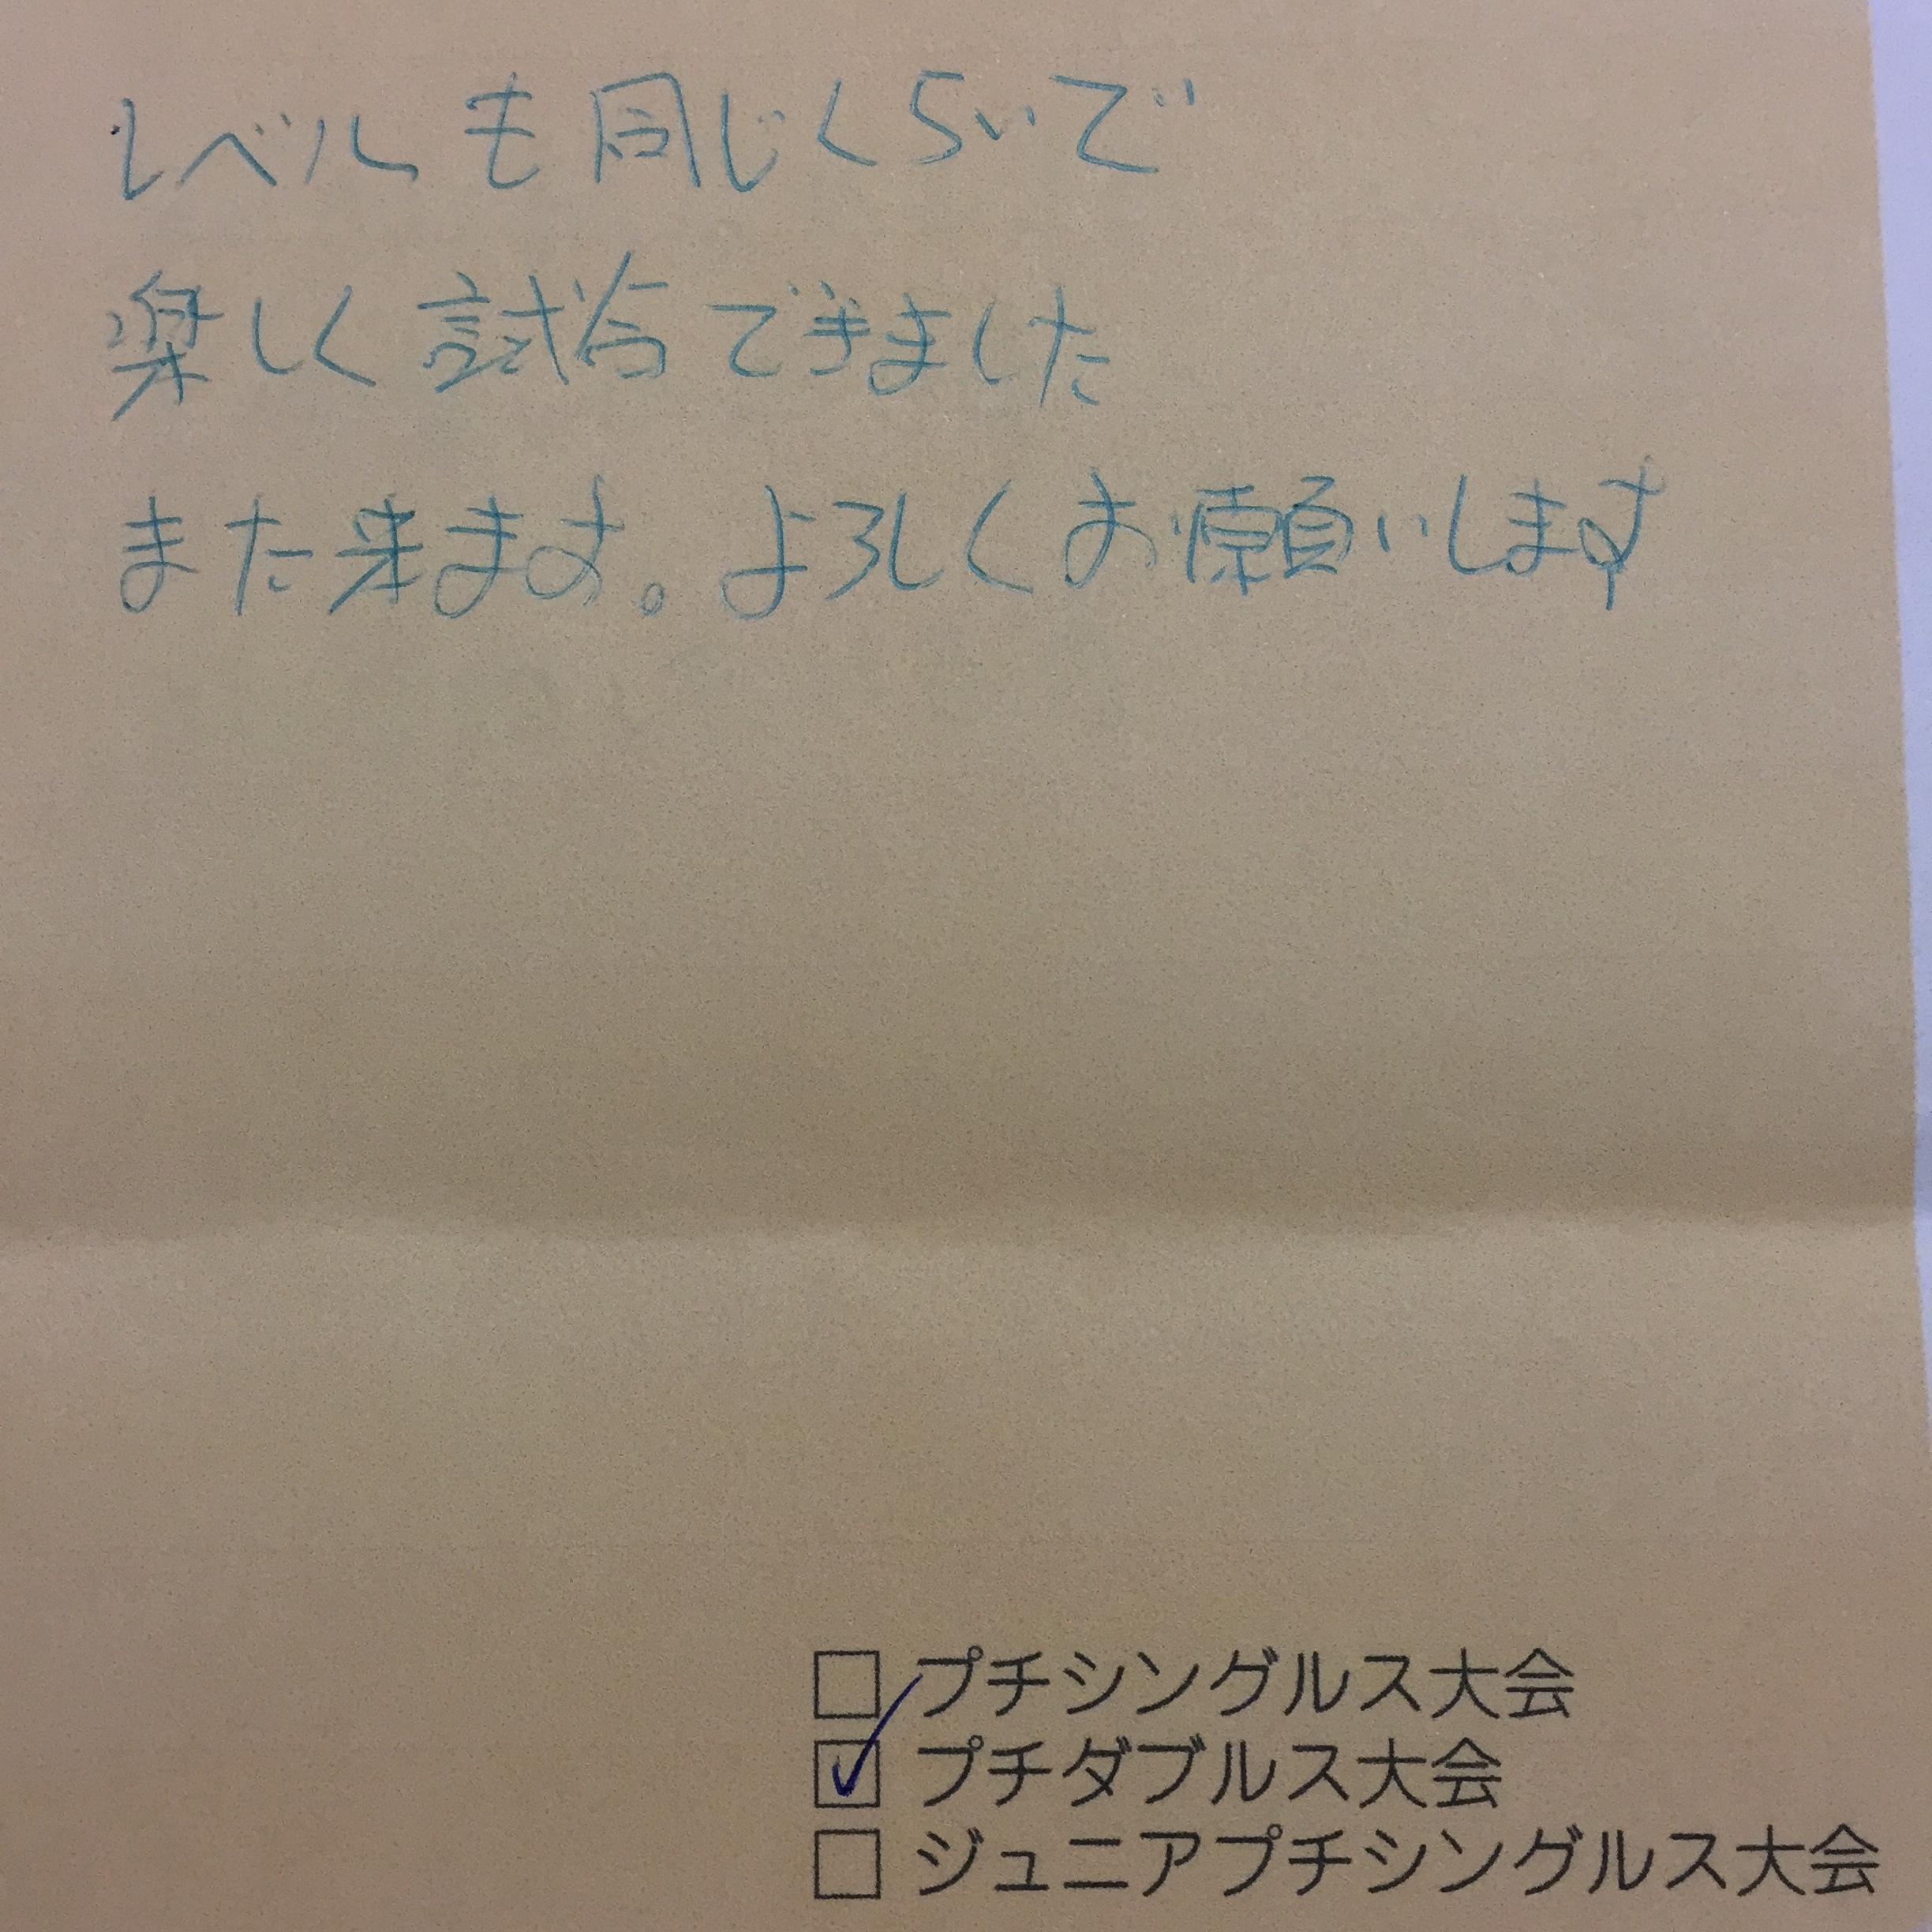 レベルも同じくらいで
楽しく試合できました
また来ます。よろしくお願いします
□ プチシングルス大会
☑ プチダブルス大会
□ ジュニアプチシングルス大会